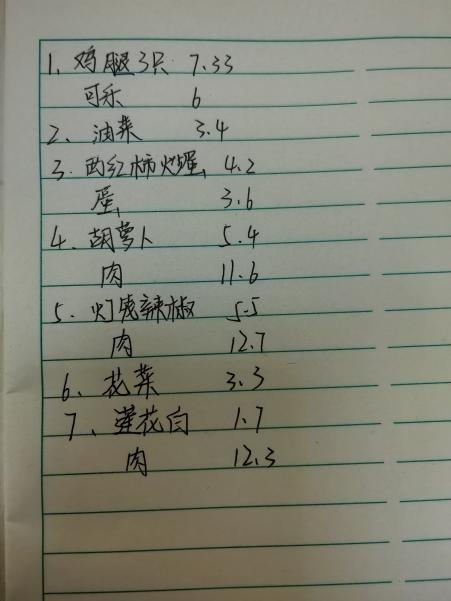 1、鸡腿3只 7.33
可乐 6
2、油菜 3.4
3.西红柿炒蛋 4.2
蛋 3.6
4、胡萝卜 5.4
肉 11.6
5.灯笼辣椒 5.5
肉 12.7
6、花菜 3.3
7、莲花白 1.7
肉 12.3